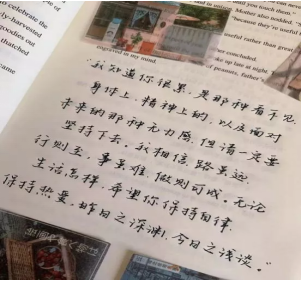 celebrate the
ly-harvested
goodies out
thatched
came
and in unison.
you touch them."
Mother also nodded.
because they're useful
useful rather than great
engraved in my mind.
concluded.
up late at night.
of peanuts, father's
"我知道你很累,是那种看不见
身体上,精神上的,以及面对
未来的那种无力感,但请一定要
坚持下去,我相信路虽远
行则至,事虽难,做则可成。无论
生活怎样,希望你保持自律
保持热爱,昨日之深渊,今日之浅谈。"